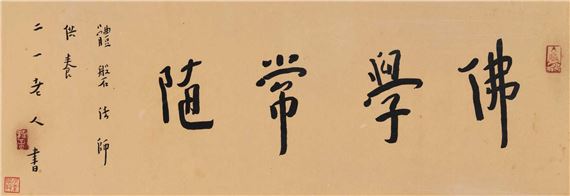 佛學常隨
體磐法師
供養
二一老人書